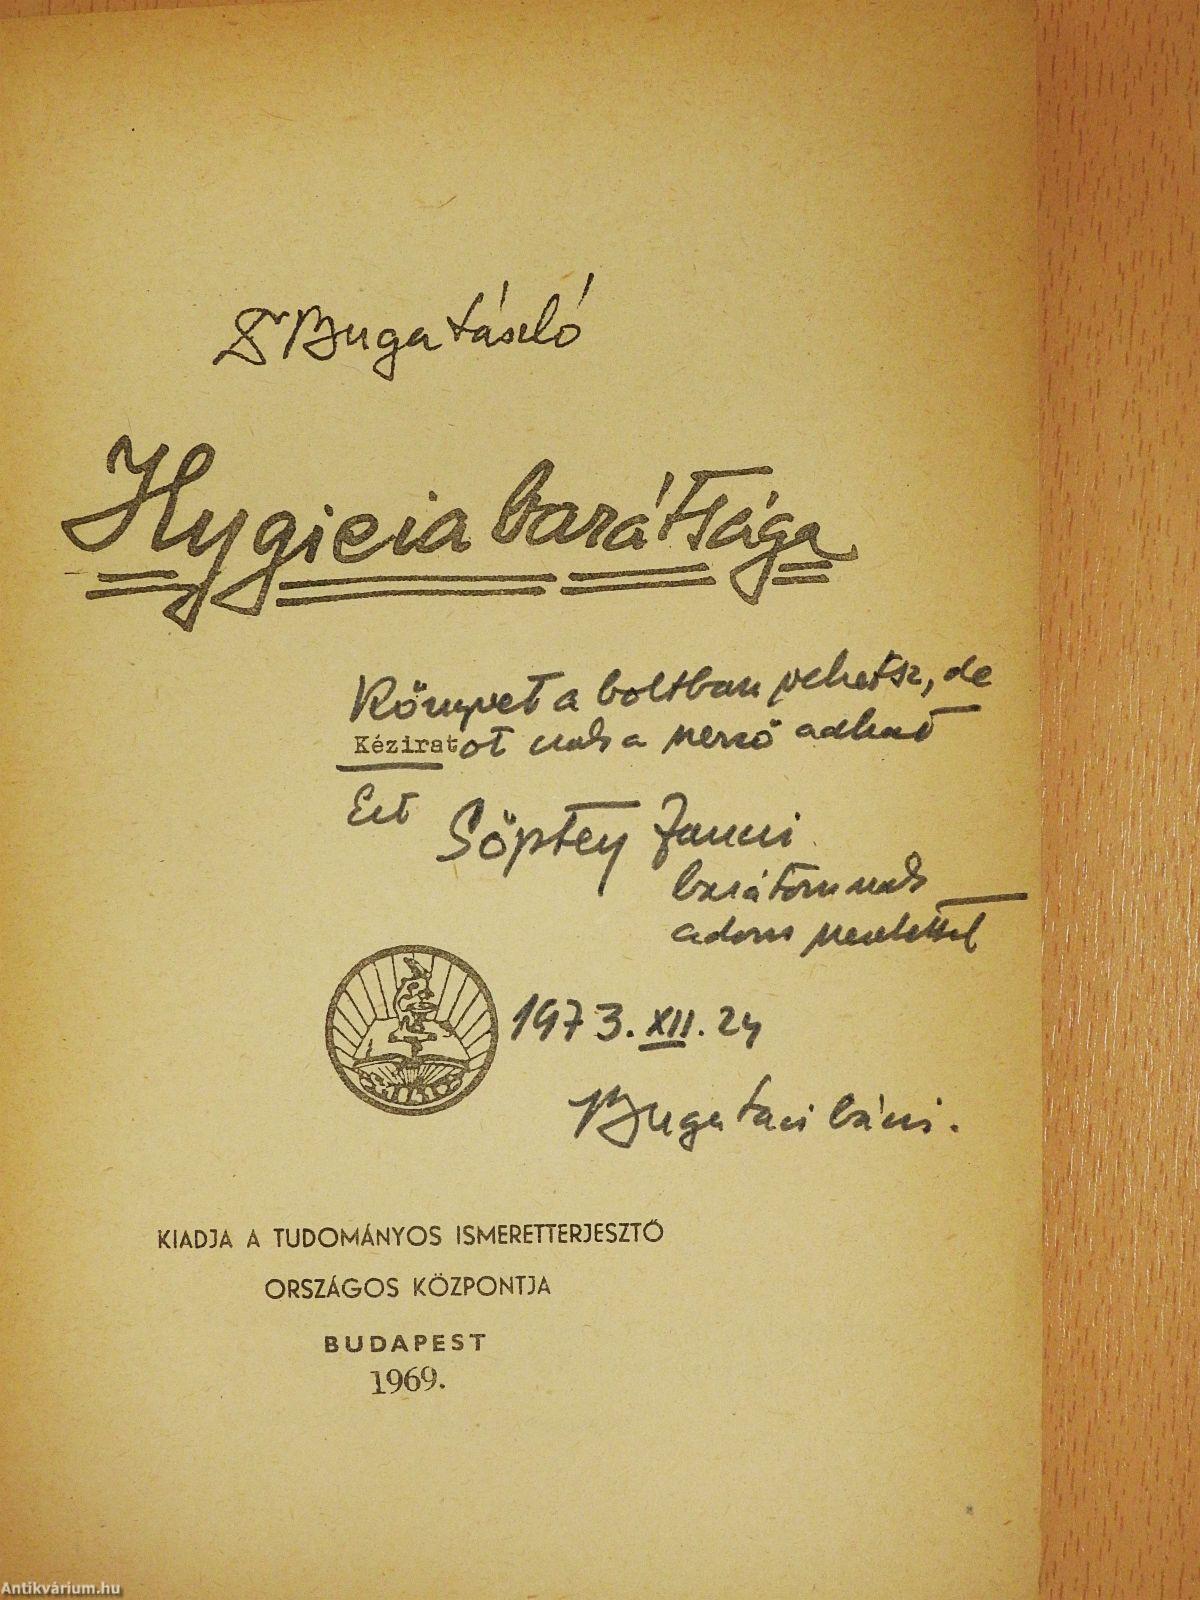 Dr Buga László
Hygieia barátsága
Könyvet a boltban vehetsz, de
Kéziratot csak a szerző adhat
Ezt Söptey Jancsi
barátomnak
adom szeretettel
1973. XII. 24
Buga Laci bácsi.
KIADJA A TUDOMÁNYOS ISMERETTERJESZTŐ
ORSZÁGOS KÖZPONTJA
BUDAPEST
1969.
Antikvárium.hu